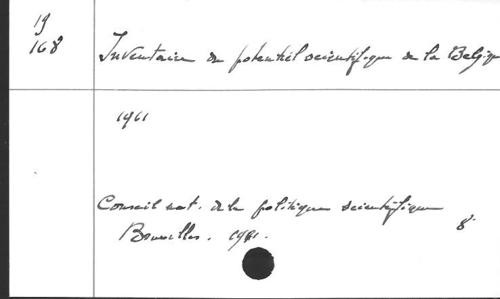 19
168
Inventaire du potentiel scientifique de la Belgiqu
1961
Conseil nat. de la politique scientifique
Bruxelles. 1961. 8°